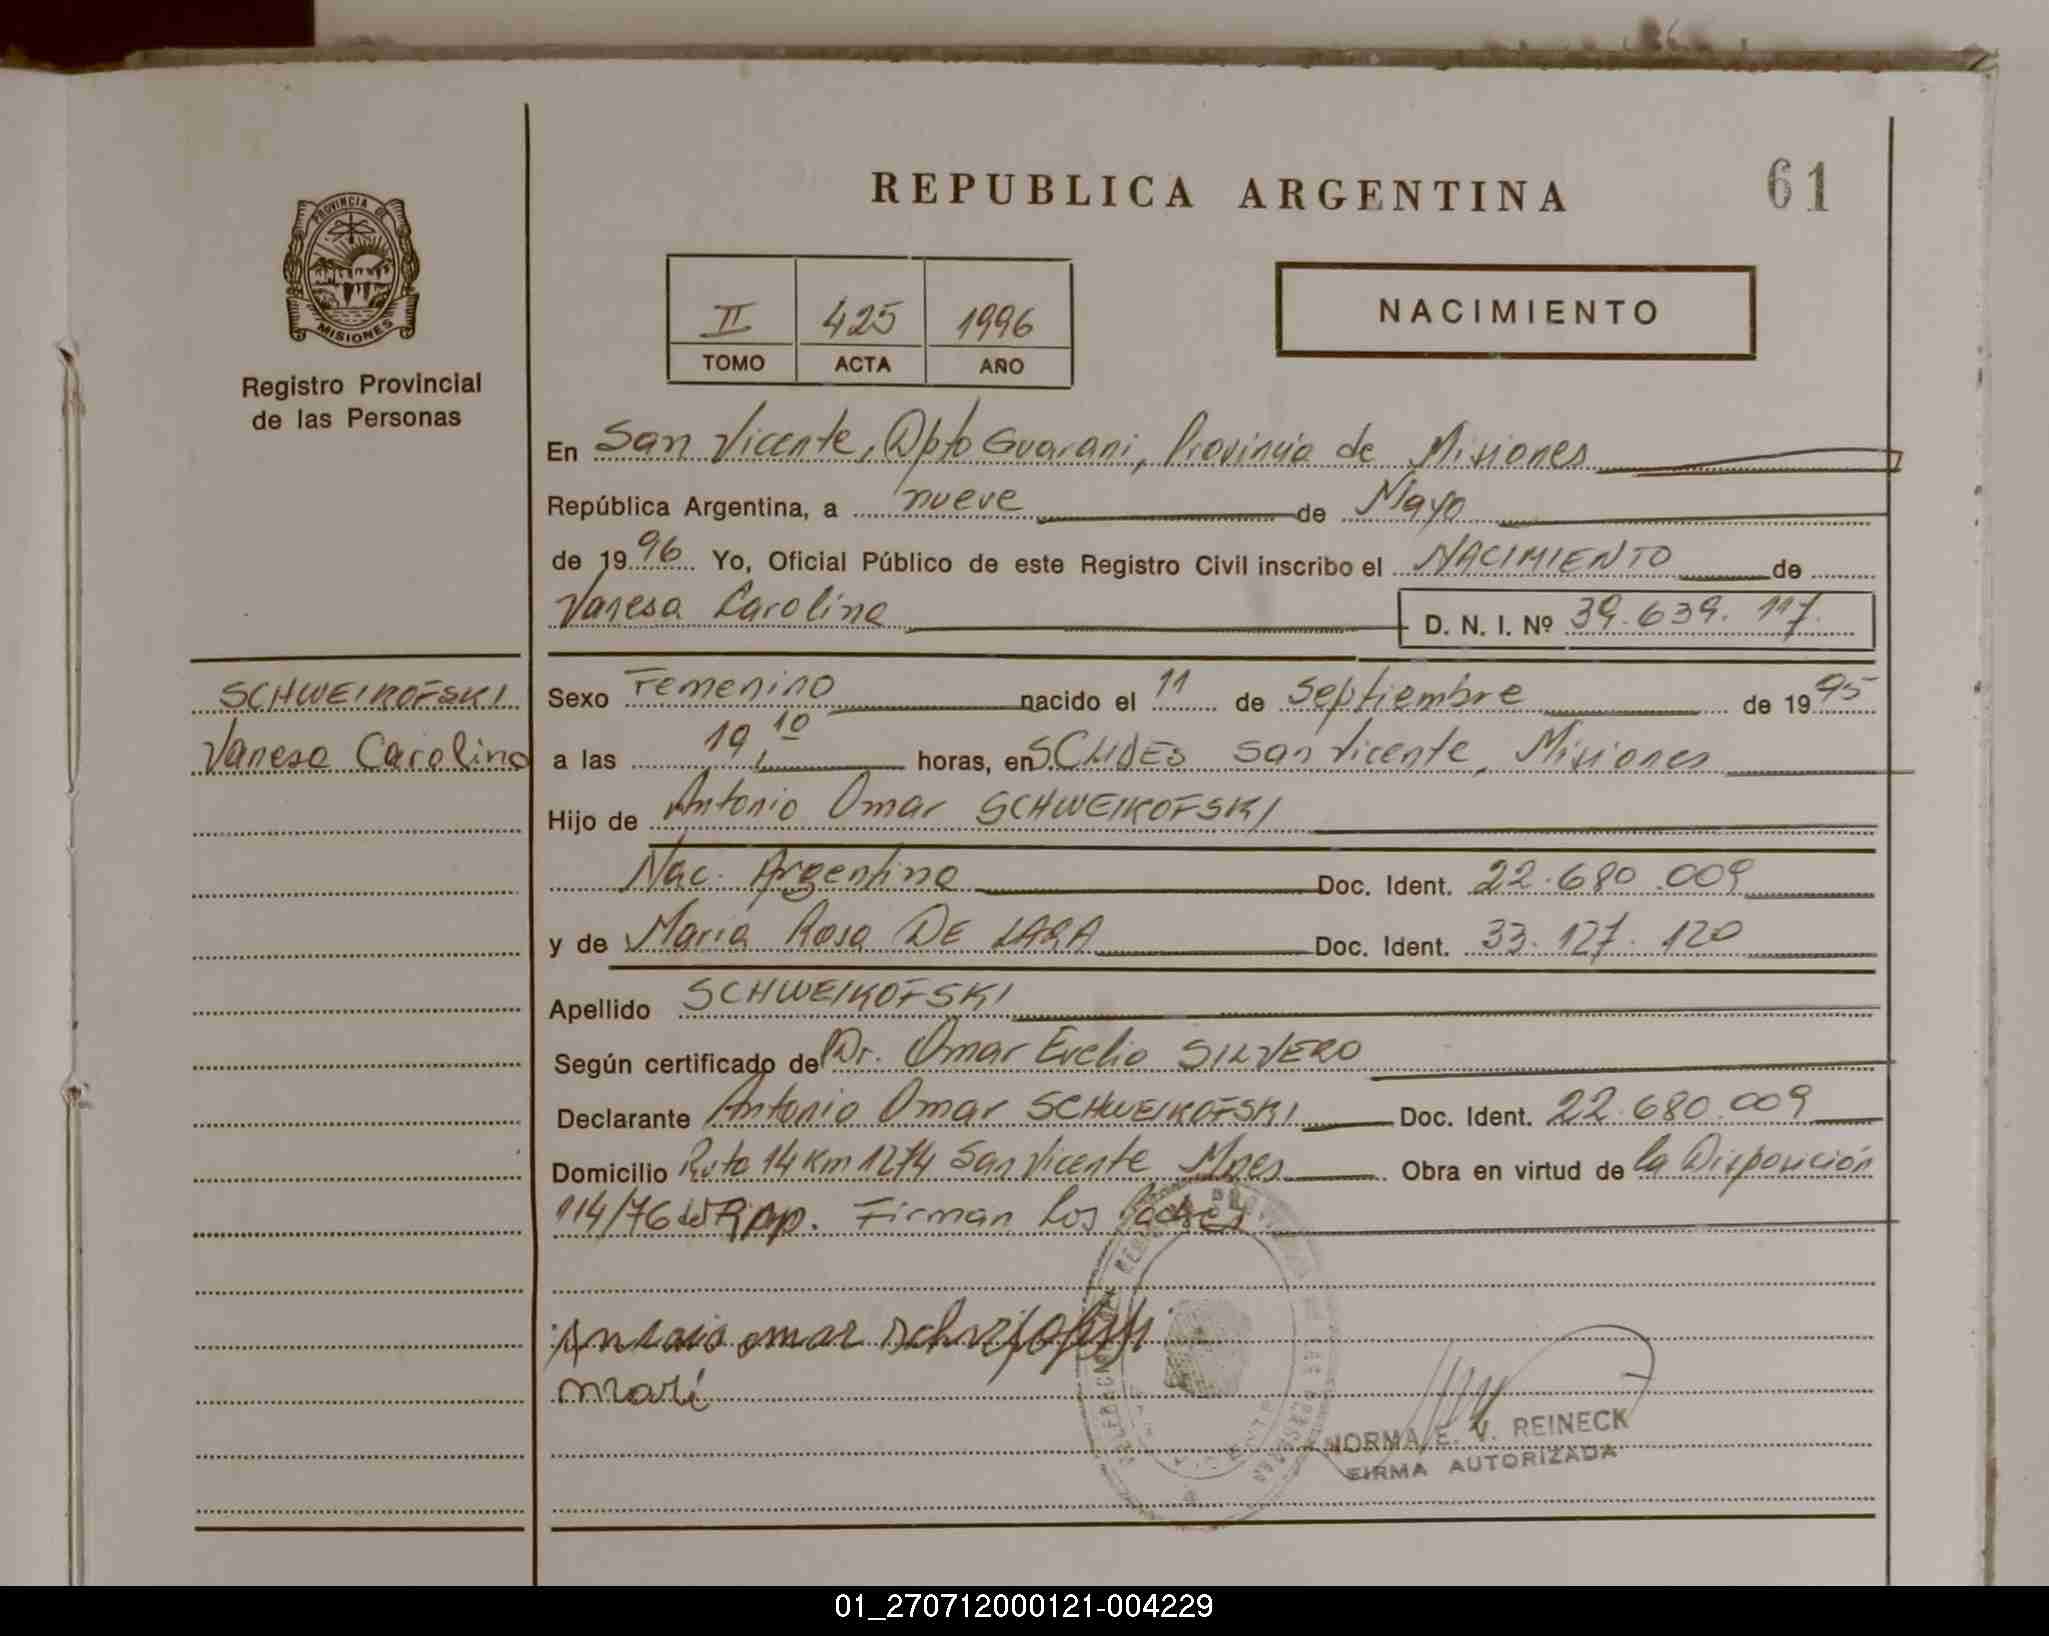 REPUBLICA ARGENTINA
61
PROVINCIA DE
MISIONES
Registro Provincial
de las Personas
II 425 1996
TOMO ACTA AÑO
NACIMIENTO
En San Vicente, Dpto Guarani, Provincia de Misiones
República Argentina, a nueve de Mayo
de 1996 Yo, Oficial Público de este Registro Civil inscribo el NACIMIENTO de
Vanesa Carolina D. N. I. Nº 39.639.117.
SCHWEIKOFSKI
Vanesa Carolina
Sexo Femenino nacido el 11 de Septiembre de 1995
a las 19,10 horas, en San Vicente, Misiones
Hijo de Antonio Omar SCHWEIKOFSKI
Nac. Argentina Doc. Ident. 22.680.009
y de Maria Rosa DE LARA Doc. Ident. 33.127.120
Apellido SCHWEIKOFSKI
Según certificado de Dr. Omar Evelio SILVERO
Declarante Antonio Omar SCHWEIKOFSKI Doc. Ident. 22.680.009
Domicilio Ruta 14 Km 1274 San Vicente Mnes Obra en virtud de la Disposición
114/76 del R.P.P. Firman los Padres
omar
mari
NORMA E. V. REINECK
FIRMA AUTORIZADA
01_270712000121-004229